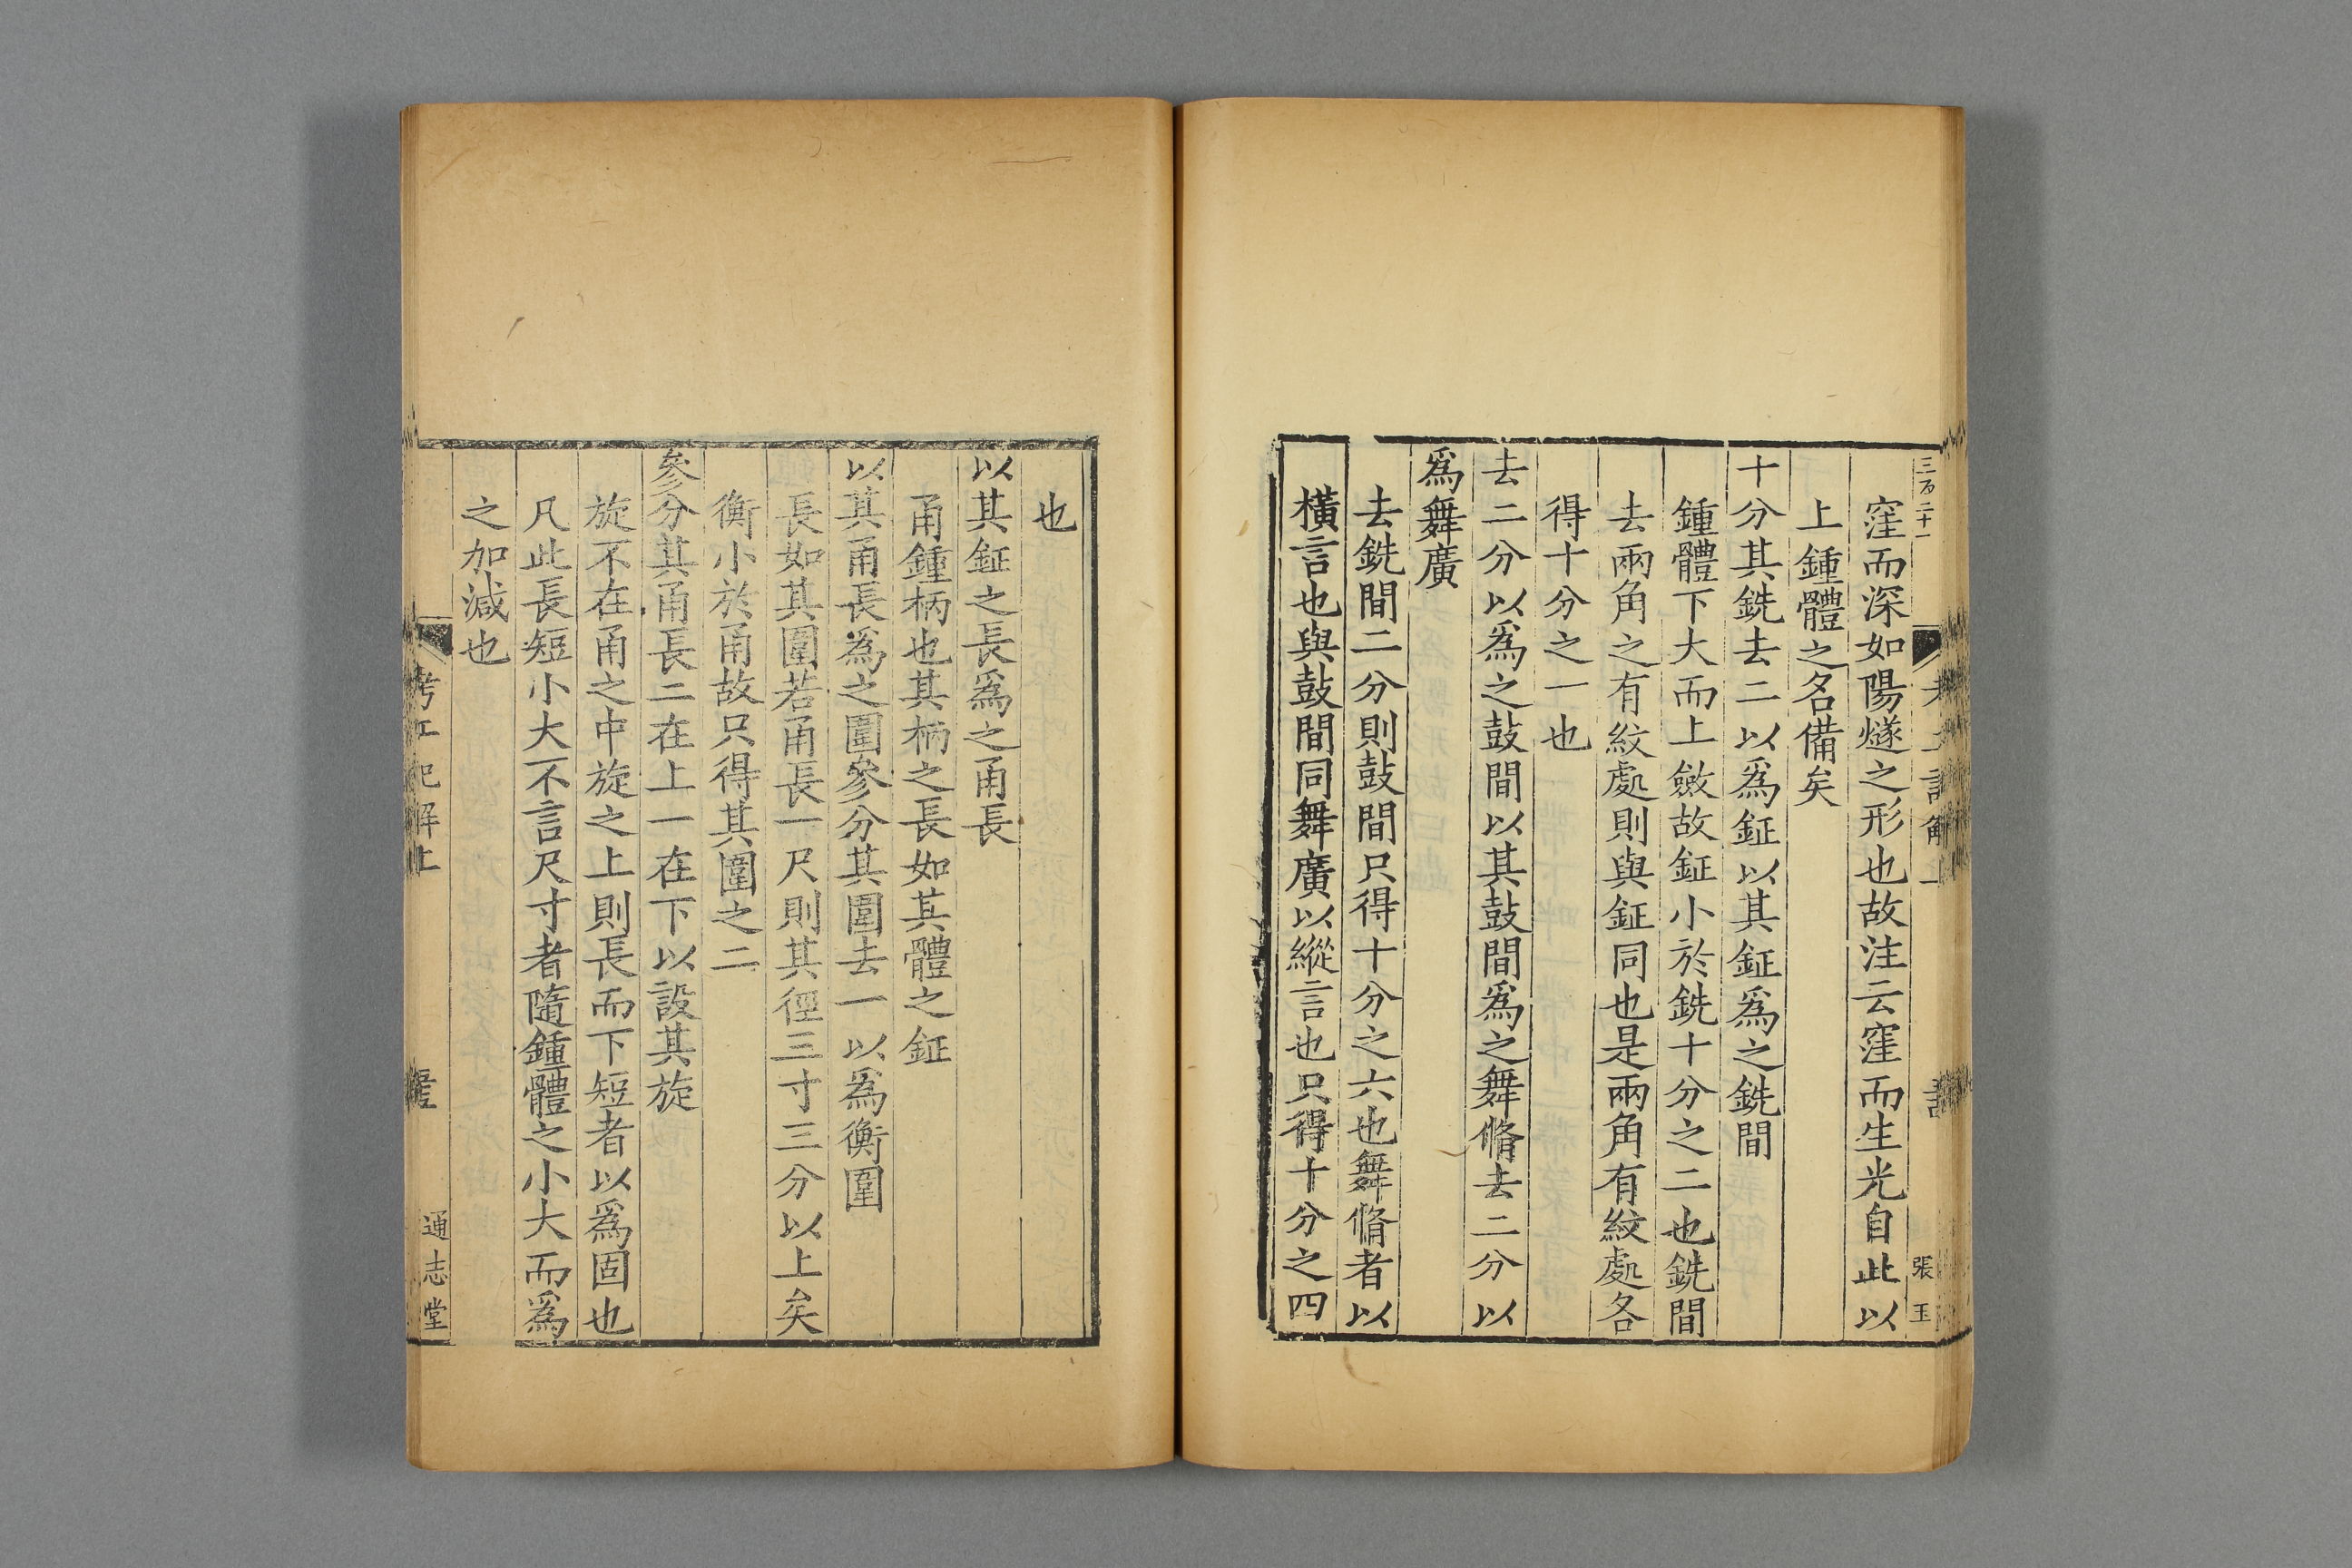 三百二十一
張玉
窪而深如陽燧之形也故注云窪而生光自此以
上鍾體之名備矣
十分其銑去二以爲鉦以其鉦爲之銑間
鍾體下大而上斂故鉦小於銑十分之二也銑間
去兩角之有紋處則與鉦同也是兩角有紋處各
得十分之一也
去二分以爲之鼓間以其鼓間爲之舞脩去二分以
爲舞廣
去銑間二分則鼓間只得十分之六也舞脩者以
橫言也與鼓間同舞廣以縱言也只得十分之四
也
以其鉦之長爲之甬長
甬鍾柄也其柄之長如其體之鉦
以其甬長爲之圍參分其圍去一以爲衡圍
長如其圍若甬長一尺則其徑三寸三分以上矣
衡小於甬故只得其圍之二
參分其甬長二在上一在下以設其旋
旋不在甬之中旋之上則長而下短者以爲固也
凡此長短小大不言尺寸者隨鍾體之小大而爲
之加減也
考工記解上
通志堂